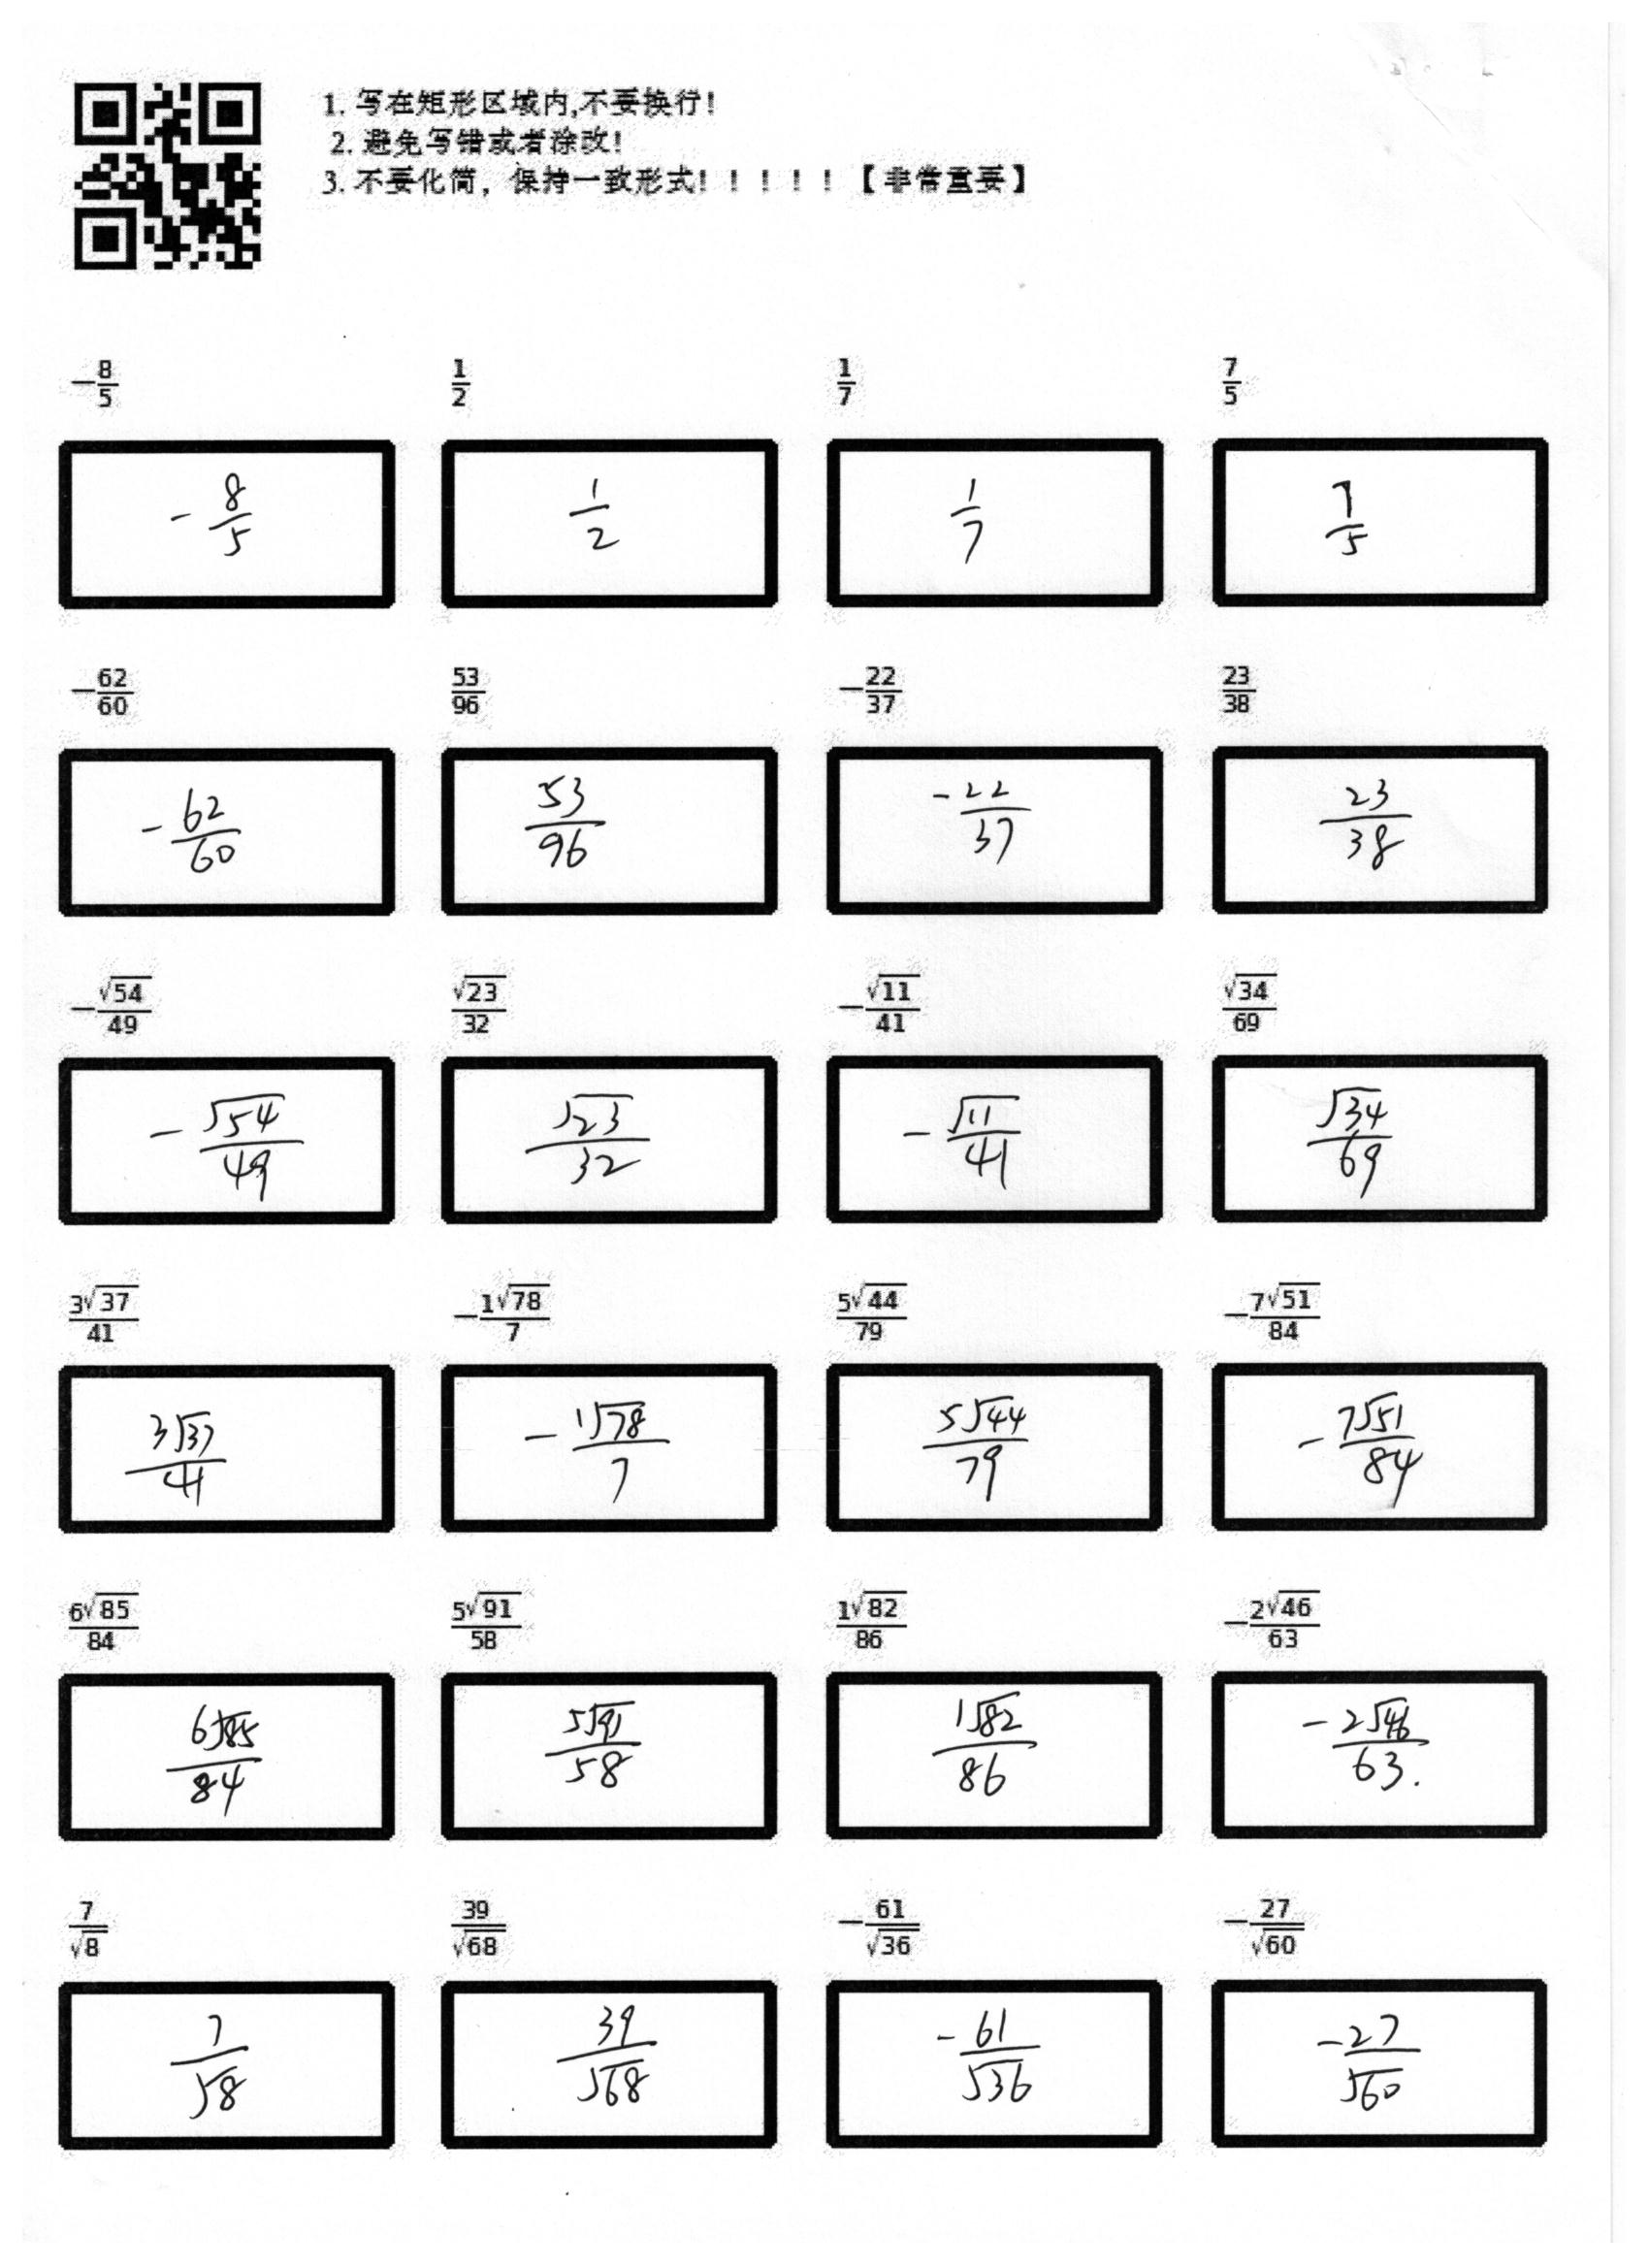 1. 写在矩形区域内,不要换行!
2. 避免写错或者涂改!
3. 不要化简，保持一致形式! ! ! ! ! 【非常重要】
$-\frac{8}{5}$ $\frac{1}{2}$ $\frac{1}{7}$ $\frac{7}{5}$
$-\frac{8}{5}$ $\frac{1}{2}$ $\frac{1}{7}$ $\frac{7}{5}$
$-\frac{62}{60}$ $\frac{53}{96}$ $-\frac{22}{37}$ $\frac{23}{38}$
$-\frac{62}{60}$ $\frac{53}{96}$ $-\frac{22}{37}$ $\frac{23}{38}$
$-\frac{\sqrt{54}}{49}$ $\frac{\sqrt{23}}{32}$ $-\frac{\sqrt{11}}{41}$ $\frac{\sqrt{34}}{69}$
$-\frac{\sqrt{54}}{49}$ $\frac{\sqrt{23}}{32}$ $-\frac{\sqrt{11}}{41}$ $\frac{\sqrt{34}}{69}$
$\frac{3\sqrt{37}}{41}$ $-\frac{1\sqrt{78}}{7}$ $\frac{5\sqrt{44}}{79}$ $-\frac{7\sqrt{51}}{84}$
$\frac{3\sqrt{37}}{41}$ $-\frac{1\sqrt{78}}{7}$ $\frac{5\sqrt{44}}{79}$ $-\frac{7\sqrt{51}}{84}$
$\frac{6\sqrt{85}}{84}$ $\frac{5\sqrt{91}}{58}$ $\frac{1\sqrt{82}}{86}$ $-\frac{2\sqrt{46}}{63}$
$\frac{6\sqrt{85}}{84}$ $\frac{5\sqrt{91}}{58}$ $\frac{1\sqrt{82}}{86}$ $-\frac{2\sqrt{46}}{63.}$
$\frac{7}{\sqrt{8}}$ $\frac{39}{\sqrt{68}}$ $-\frac{61}{\sqrt{36}}$ $-\frac{27}{\sqrt{60}}$
$\frac{7}{\sqrt{8}}$ $\frac{39}{\sqrt{68}}$ $-\frac{61}{\sqrt{36}}$ $-\frac{27}{\sqrt{60}}$